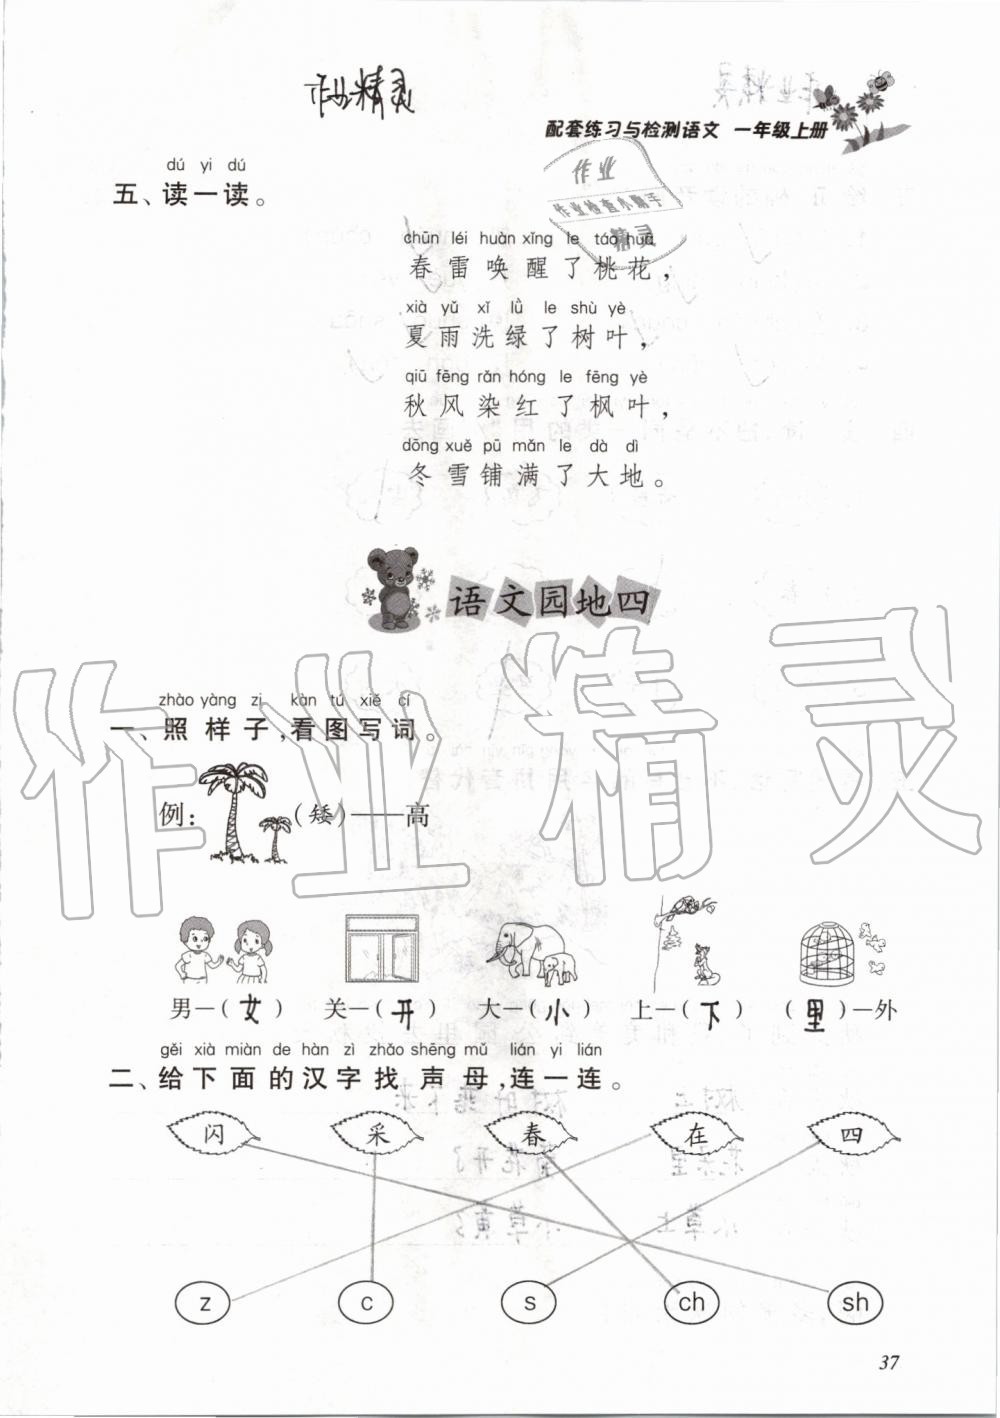 作业精灵
配套练习与检测语文 一年级上册
dú yi dú
五、读一读。
作业
作业检查小助手
精灵
chūn léi huàn xǐng le táo huā
春雷唤醒了桃花，
xià yǔ xǐ lǜ le shù yè
夏雨洗绿了树叶，
qiū fēng rǎn hóng le fēng yè
秋风染红了枫叶，
dōng xuě pū mǎn le dà dì
冬雪铺满了大地。
语文园地四
zhào yàng zi kàn tú xiě cí
一、照样子，看图写词。
例：（矮）——高
男—（女） 关—（开） 大—（小） 上—（下） （里）—外
gěi xià miàn de hàn zì zhǎo shēng mǔ lián yi lián
二、给下面的汉字找声母，连一连。
闪 采 春 在 四
z c s ch sh
37
作业精灵